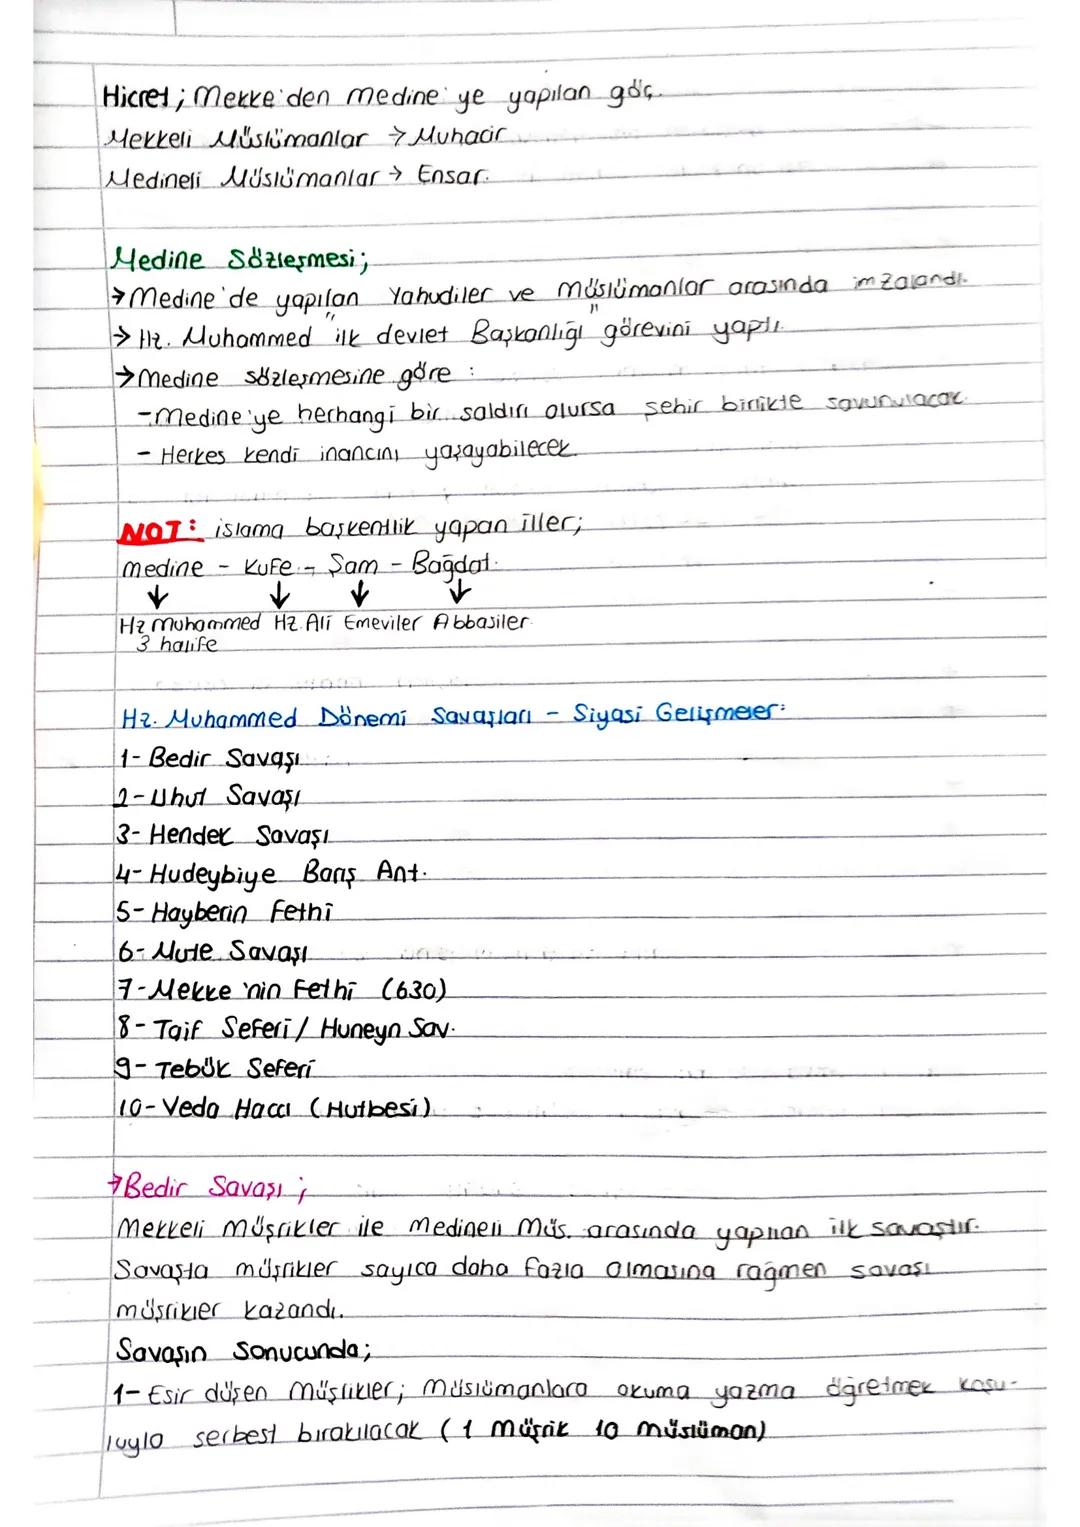 Hicret; Mekke'den Medine'ye yapılan göç.
Mekkeli Müslümanlar → Muhacir
Medineli Müslümanlar → Ensar.
Medine Sözleşmesi;
→ Medine'de yapılan Yahudiler ve müslümanlar arasında imzalandı.
→ Hz. Muhammed "ilk devlet Başkanlığı" görevini yaptı.
→ Medine sözleşmesine göre :
- Medine'ye herhangi bir saldırı olursa şehir birlikte savunulacak.
- Herkes kendi inancını yaşayabilecek.
NOT: islama başkentlik yapan iller;
medine - Kufe - Şam - Bağdat.
↓ ↓ ↓ ↓
Hz muhammed Hz. Ali Emeviler Abbasiler
3 halife
Hz. Muhammed Dönemi Savaşları - Siyasi Gelişmeler:
1- Bedir Savaşı
2- Uhut Savaşı
3- Hendek Savaşı
4- Hudeybiye Barış Ant.
5- Hayberin Fethi
6- Mute Savaşı
7- Mekke'nin Fethi (630)
8- Taif Seferi / Huneyn Sav.
9- Tebük Seferi
10- Veda Haccı (Hutbesi)
→ Bedir Savaşı;
Mekkeli müşrikler ile medineli Müs. arasında yapılan ilk savaştır.
Savaşta müşrikler sayıca daha fazla olmasına rağmen savaşı
müşrikler kazandı.
Savaşın Sonucunda;
1- Esir düşen Müşrikler; müslümanlara okuma yazma öğretmek koşu-
luyla serbest bırakılacak (1 müşrik 10 müslüman)